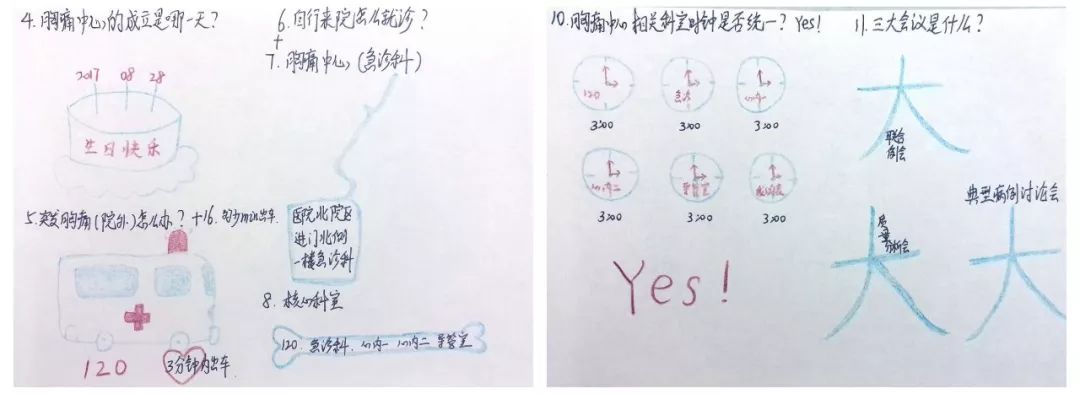 4. 胸痛中心的成立是哪一天?
2017 08 28
生日快乐
5. 突发胸痛(院外)怎么办? +16. 多少min出车
120
3分钟内出车
6. 自行来院怎么就诊?
+
7. 胸痛中心(急诊科)
医院北院区
进门北侧
一楼急诊科
8. 核心科室
120. 急诊科. 心内一 心内二 导管室
10. 胸痛中心相关科室时钟是否统一? Yes!
120
急诊
心内一
3:00
3:00
3:00
心内二
导管室
3:00
3:00
3:00
Yes!
11. 三大会议是什么?
大
联合
例会
典型病例讨论会
大
质量
分析会
大